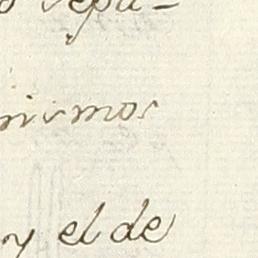 sepa-
nismos
y el de